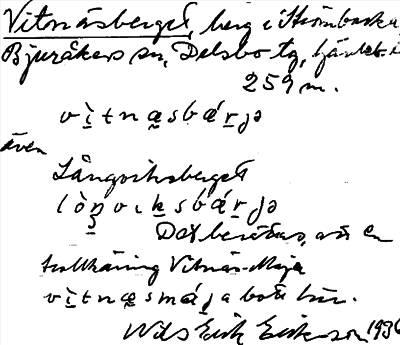 Vitnäsberget, berg i Strömbacka,
Bjuråkers sn, Delsbo tg, Hälsl.
259 m.
vìtnæsbárjə
även
Långviksberget
lòŋvıksbárjə
Det berättas, att en
trollkäring Vitnäs-Maja
vìtnæsmája bott här.
Nils Erik Eriksson 1936